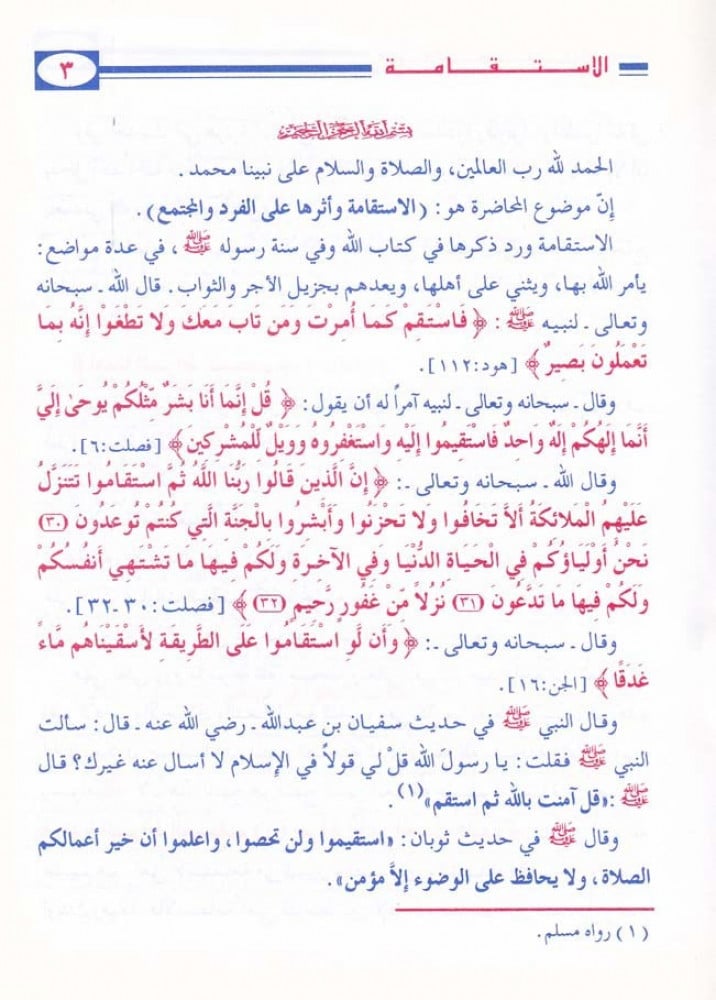 الاستقامة
٣
بسم الله الرحمن الرحيم
الحمد لله رب العالمين، والصلاة والسلام على نبينا محمد .
إنّ موضوع المحاضرة هو : (الاستقامة وأثرها على الفرد والمجتمع) .
الاستقامة ورد ذكرها في كتاب الله وفي سنة رسوله ﷺ ، في عدة مواضع :
يأمر الله بها، ويثني على أهلها، ويعدهم بجزيل الأجر والثواب . قال الله ـ سبحانه
وتعالى ـ لنبيه ﷺ : ﴿ فَاسْتَقِمْ كَمَا أُمِرْتَ وَمَن تَابَ مَعَكَ وَلا تَطْغَوْا إِنَّهُ بِمَا
تَعْمَلُونَ بَصِيرٌ ﴾ [هود : ١١٢] .
وقال ـ سبحانه وتعالى ـ لنبيه آمراً له أن يقول : ﴿ قُلْ إِنَّمَا أَنَا بَشَرٌ مِّثْلُكُمْ يُوحَىٰ إِلَيَّ
أَنَّمَا إِلَهُكُمْ إِلَهٌ وَاحِدٌ فَاسْتَقِيمُوا إِلَيْهِ وَاسْتَغْفِرُوهُ وَوَيْلٌ لِّلْمُشْرِكِينَ ﴾ [فصلت : ٦] .
وقال الله ـ سبحانه وتعالى ـ : ﴿ إِنَّ الَّذِينَ قَالُوا رَبُّنَا اللَّهُ ثُمَّ اسْتَقَامُوا تَتَنَزَّلُ
عَلَيْهِمُ الْمَلائِكَةُ أَلاَّ تَخَافُوا وَلا تَحْزَنُوا وَأَبْشِرُوا بِالْجَنَّةِ الَّتِي كُنتُمْ تُوعَدُونَ (٣٠)
نَحْنُ أَوْلِيَاؤُكُمْ فِي الْحَيَاةِ الدُّنْيَا وَفِي الآخِرَةِ وَلَكُمْ فِيهَا مَا تَشْتَهِي أَنفُسُكُمْ
وَلَكُمْ فِيهَا مَا تَدَّعُونَ (٣١) نُزُلاً مِّنْ غَفُورٍ رَّحِيمٍ (٣٢) ﴾ [فصلت : ٣٠ ـ ٣٢] .
وقال ـ سبحانه وتعالى ـ : ﴿ وَأَن لَّوِ اسْتَقَامُوا عَلَى الطَّرِيقَةِ لأَسْقَيْنَاهُم مَّاءً
غَدَقًا ﴾ [الجن : ١٦] .
وقال النبي ﷺ في حديث سفيان بن عبدالله ـ رضي الله عنه ـ قال : سألت
النبي ﷺ فقلت : يا رسولَ الله قلْ لي قولاً في الإسلام لا أسال عنه غيرك؟ قال
ﷺ : «قل آمنت بالله ثم استقم»(١) .
وقال ﷺ في حديث ثوبان : «استقيموا ولن تحصوا، واعلموا أن خير أعمالكم
الصلاة، ولا يحافظ على الوضوء إلاَّ مؤمن» .
(١) رواه مسلم .